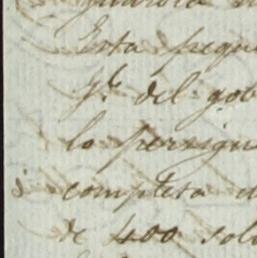 Esta pequ
Jl. del gob
lo persigu
completa d
de 400 sol